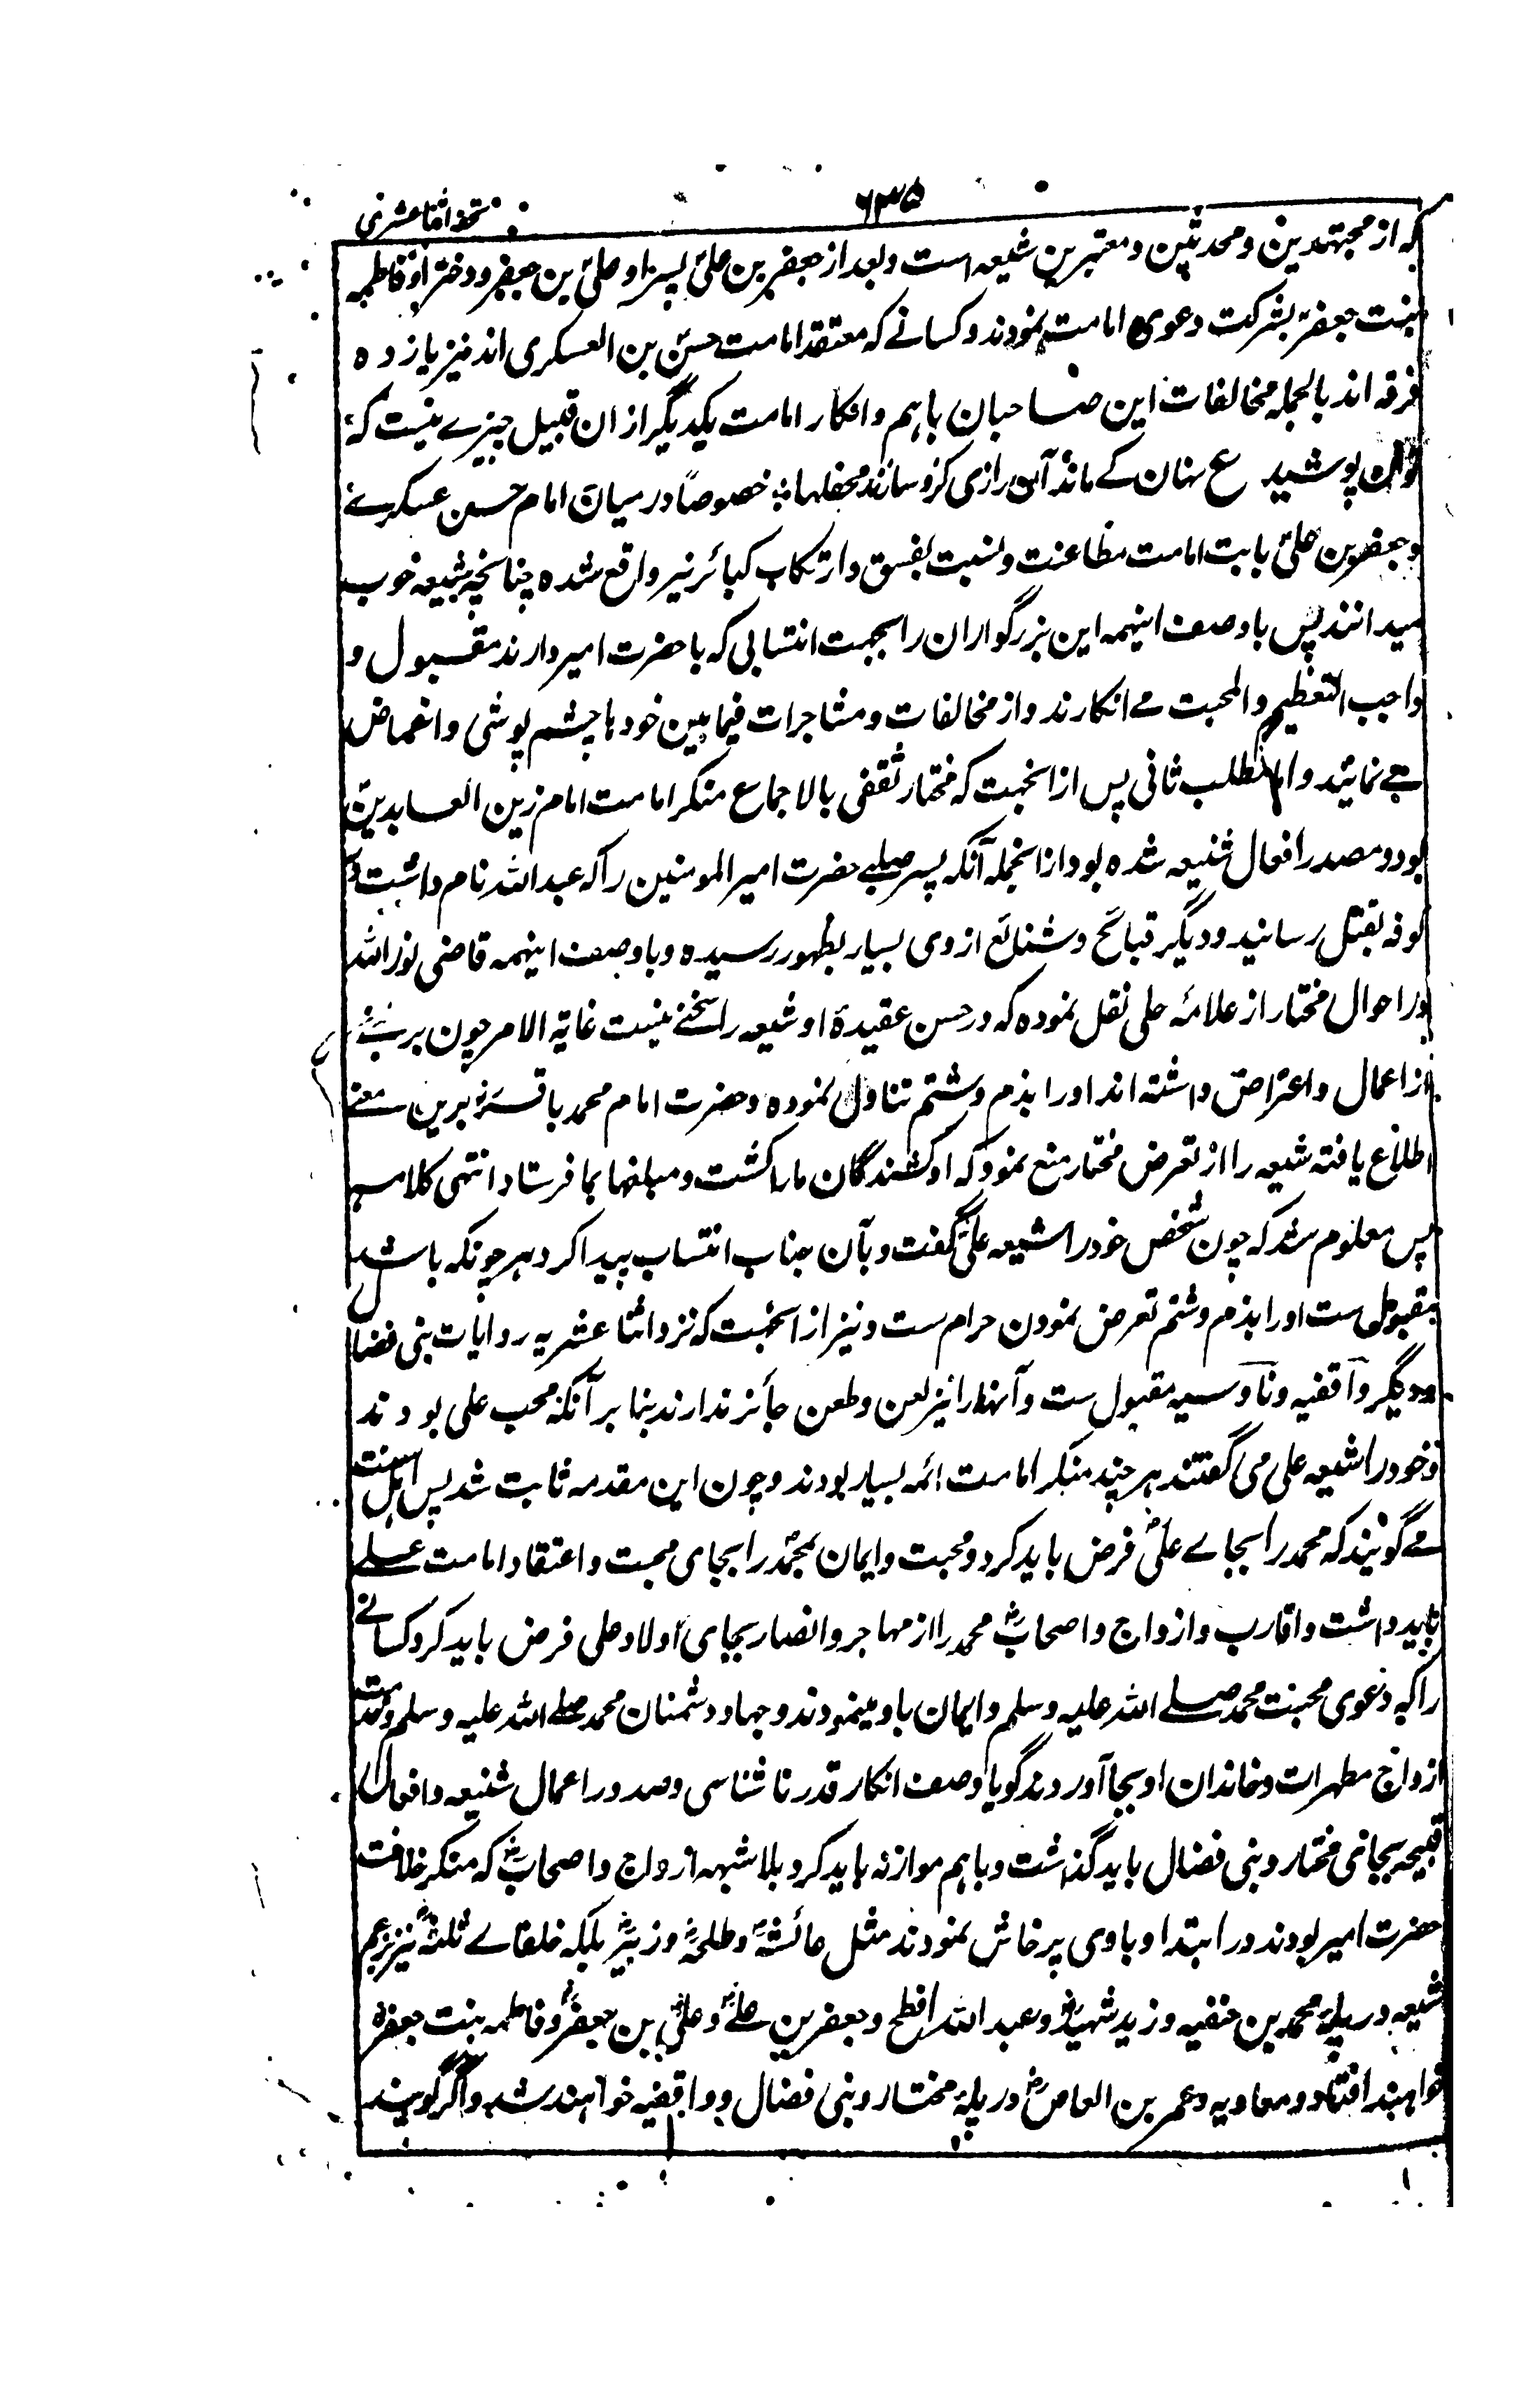 ۶۳۵
تحفه اثنا عشری
که از مجتهدین و محدثین و معتبرین شیعه است و بعد از جعفر بن علی پسر او علی بن جعفر و دختر او فاطمه
بنت جعفر بشرکت دعوی امامت نمودند و کسانے که معتقد امامت حسن بن العسکری اند نیز یازده
فرقه اند بالجمله مخالفات این صاحبان باہم و انکار امامت یکدیگر ازان قبیل چیزے نیست که
توان پوشید ع نہان کے ماند آن رازی کزو سازند محفلہا خصوصاً درمیان امام حسن عسکرے
و جعفر بن علی بابت امامت مطاعنت و نسبت بفسق و ارتکاب کبائر نیز واقع شده چنانچه شیعه خوب
میدانند پس باوصف اینہمه این بزرگواران را بجہت انتسابی که با حضرت امیر دارند مقبول و
واجب التعظیم والمحبت مے انکارند و از مخالفات و مشاجرات فیما بین خودہا چشم پوشی و اغماض
مے نمایند و اما مطلب ثانی پس ازانجہت که مختار ثقفی بالاجماع منکر امامت امام زین العابدین
بود و مصدر افعال شنیعه شده بود ازانجمله آنکه پسر صلبے حضرت امیر المومنین را که عبد الله نام داشت در
کوفه بقتل رسانید و دیگر قبائح و شنائع ازوی بسیار بظہور رسیده و باوصف اینہمه قاضی نور الله
در احوال مختار از علامۂ حلی نقل نموده که در حسن عقیدۀ او شیعه را سخنے نیست غایة الامر چون بر بعضے
از اعمال و اعتراض داشته اند او را بذم و شتم تناول نموده و حضرت امام محمد باقر برین معنے
اطلاع یافته شیعه را از تعرض مختار منع نمود که او کشندگان ما را کشت و مبلغہا بما فرستاد انتہی کلامہ
پس معلوم شد که چون شخص خود را شیعه علی گفت و بآن جناب انتساب پیدا کرد ہر چونکه باشد
مقبول ست او را بذم و شتم تعرض نمودن حرام ست و نیز ازانجہت که نزد اثنا عشریه روایات بنی فضال
و دیگر واقفیه و ناوسیه مقبول ست و آنہا را نیز لعن و طعن جائز ندارند بنا بر آنکه محب علی بودند
و خود را شیعه علی می گفتند ہر چند منکر امامت ائمه بسیار بودند و چون این مقدمه ثابت شد پس اہل سنت
مے گویند که محمد را بجاے علی فرض باید کرد و محبت و ایمان بمحمد را بجای محبت و اعتقاد امامت علے
باید داشت و اقارب و ازواج و اصحاب محمد را از مہاجر و انصار بجای اولاد علی فرض باید کرد و کسانے
را که دعوی محبت محمد صلے الله علیه وسلم و ایمان باو مینمودند و جہاد دشمنان محمد صلے الله علیه وسلم و خدمت
ازواج مطہرات و خاندان او بجا آوردند گو باوصف انکار قدر ناشناسی و صدور اعمال شنیعه و افعال
قبیحه بجای مختار و بنی فضال باید گذاشت و باہم موازنه باید کرد بلا شبہه ازواج و اصحاب که منکر خلافت
حضرت امیر بودند در ابتدا و باوی پرخاش نمودند مثل عائشه و طلحه و زبیر بلکه خلفاے ثلثه نیز بزعم
شیعه در پلۂ محمد بن حنفیه و زید شہید و عبد الله افطح و جعفر بن علے و علی بن جعفر و فاطمه بنت جعفر
خواہند افتاد و معاویه و عمر بن العاص در پلۂ مختار و بنی فضال و واقفیه خواہند شد و اگر گویند